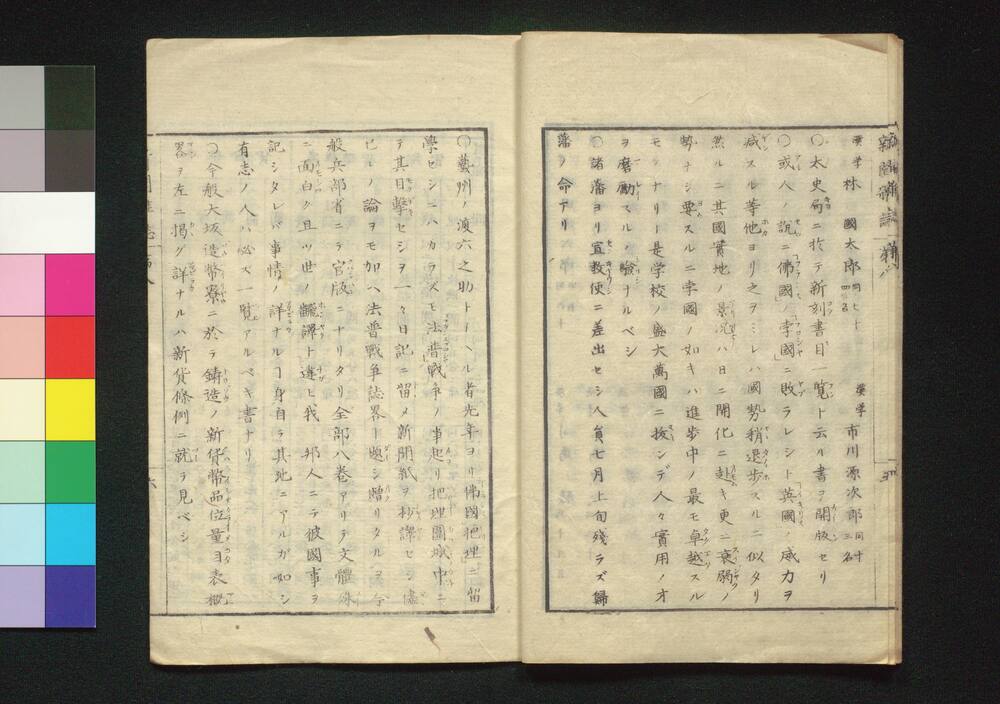 英学 林 國太郎 同七十四名 英学 市川源次郎 同十三名
〇太史局ニ於テ新刻書目一覧ト云ル書ヲ開版セリ
〇或人ノ説ニ佛國ノ孛國ニ敗ラレシト英國ノ威力ヲ
減スル等他ヨリ之ヲミレハ國勢稍退歩スルニ似タリ
然ルニ其國實地ノ景况ハ日ニ開化ニ赴キ更ニ衰弱ノ
勢ナシ要スルニ孛國ノ如キハ進歩中ノ最モ卓越スル
モノナリ是学校ノ盛大萬國ニ抜ンデ人々實用ノオ
ヲ磨勵スルノ驗ナルベシ
〇諸藩ヨリ宣教使ニ差出セシ人員七月上旬殘ラズ歸
藩ノ命アリ
〇藝州ノ渡六之助トイヘル者先年ヨリ佛國把理ニ留
學セシニハカラズモ法普戰争ノ事起リ把理圍城中ニ
テ其目擊セシヲ一々日記ニ留メ新聞紙ヲ抄譯セシ儘
ヒトノ論ヲモ加ヘ法普戰争誌畧ト題シ贈リタルヲ今
般兵部省ニテ官版ニナリタリ全部八巻アリテ文體殊
ニ面白ク且ツ世ノ飜譯ト違ヒ我 邦人ニテ彼國事ヲ
記シタレバ事情ノ詳ナルヿ身自ラ其地ニアルガ如シ
有志ノ人ハ必ズ一覧アルベキ書ナリ
〇今般大坂造幣寮ニ於テ鋳造ノ新貨幣品位量目表概
畧ヲ左ニ掲グ詳ナルハ新貨條例ニ就テ見ベシ